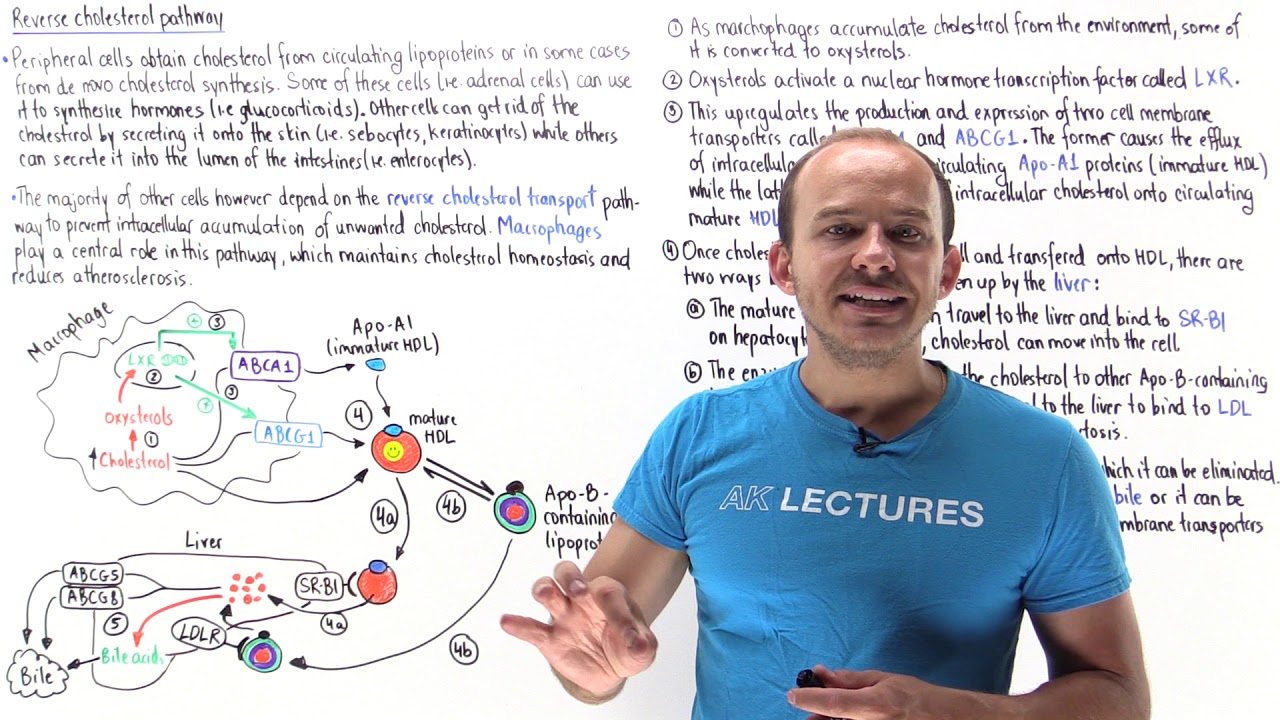 Reverse cholesterol pathway
• Peripheral cells obtain cholesterol from circulating lipoproteins or in some cases
from de novo cholesterol synthesis. Some of these cells (i.e. adrenal cells) can use
it to synthesize hormones (i.e glucocorticoids). Other cells can get rid of the
cholesterol by secreting it onto the skin (i.e. sebocytes, keratinocytes) while others
can secrete it into the lumen of the intestines (i.e. enterocytes).
• The majority of other cells however depend on the reverse cholesterol transport path-
way to prevent intracellular accumulation of unwanted cholesterol. Macrophages
play a central role in this pathway, which maintains cholesterol homeostasis and
reduces atherosclerosis.
Macrophage
+ 3
LXR
2
ABCA1
3
+
Oxysterols
1
Cholesterol
ABCG1
Apo-A1
(immature HDL)
4
mature
HDL
4a
4b
Apo-B-
containing
Liver
ABCG5
ABCG8
SR-B1
4a
5
LDLR
4b
Bile acids
Bile
① As marchophages accumulate cholesterol from the environment, some of
it is converted to oxysterols.
② Oxysterols activate a nuclear hormone transcription factor called LXR.
③ This upregulates the production and expression of two cell membrane
transporters called and ABCG1. The former causes the efflux
of Apo-A1 proteins (immature HDL)
while the intracellular cholesterol onto circulating
mature HDL
④ Once and transfered onto HDL, there are
two ways up by the liver:
ⓐ The mature travel to the liver and bind to SR-B1
on cholesterol can move into the cell.
ⓑ The the cholesterol to other Apo-B-containing
to the liver to bind to LDL
which it can be eliminated.
bile or it can be
transporters
AK LECTURES